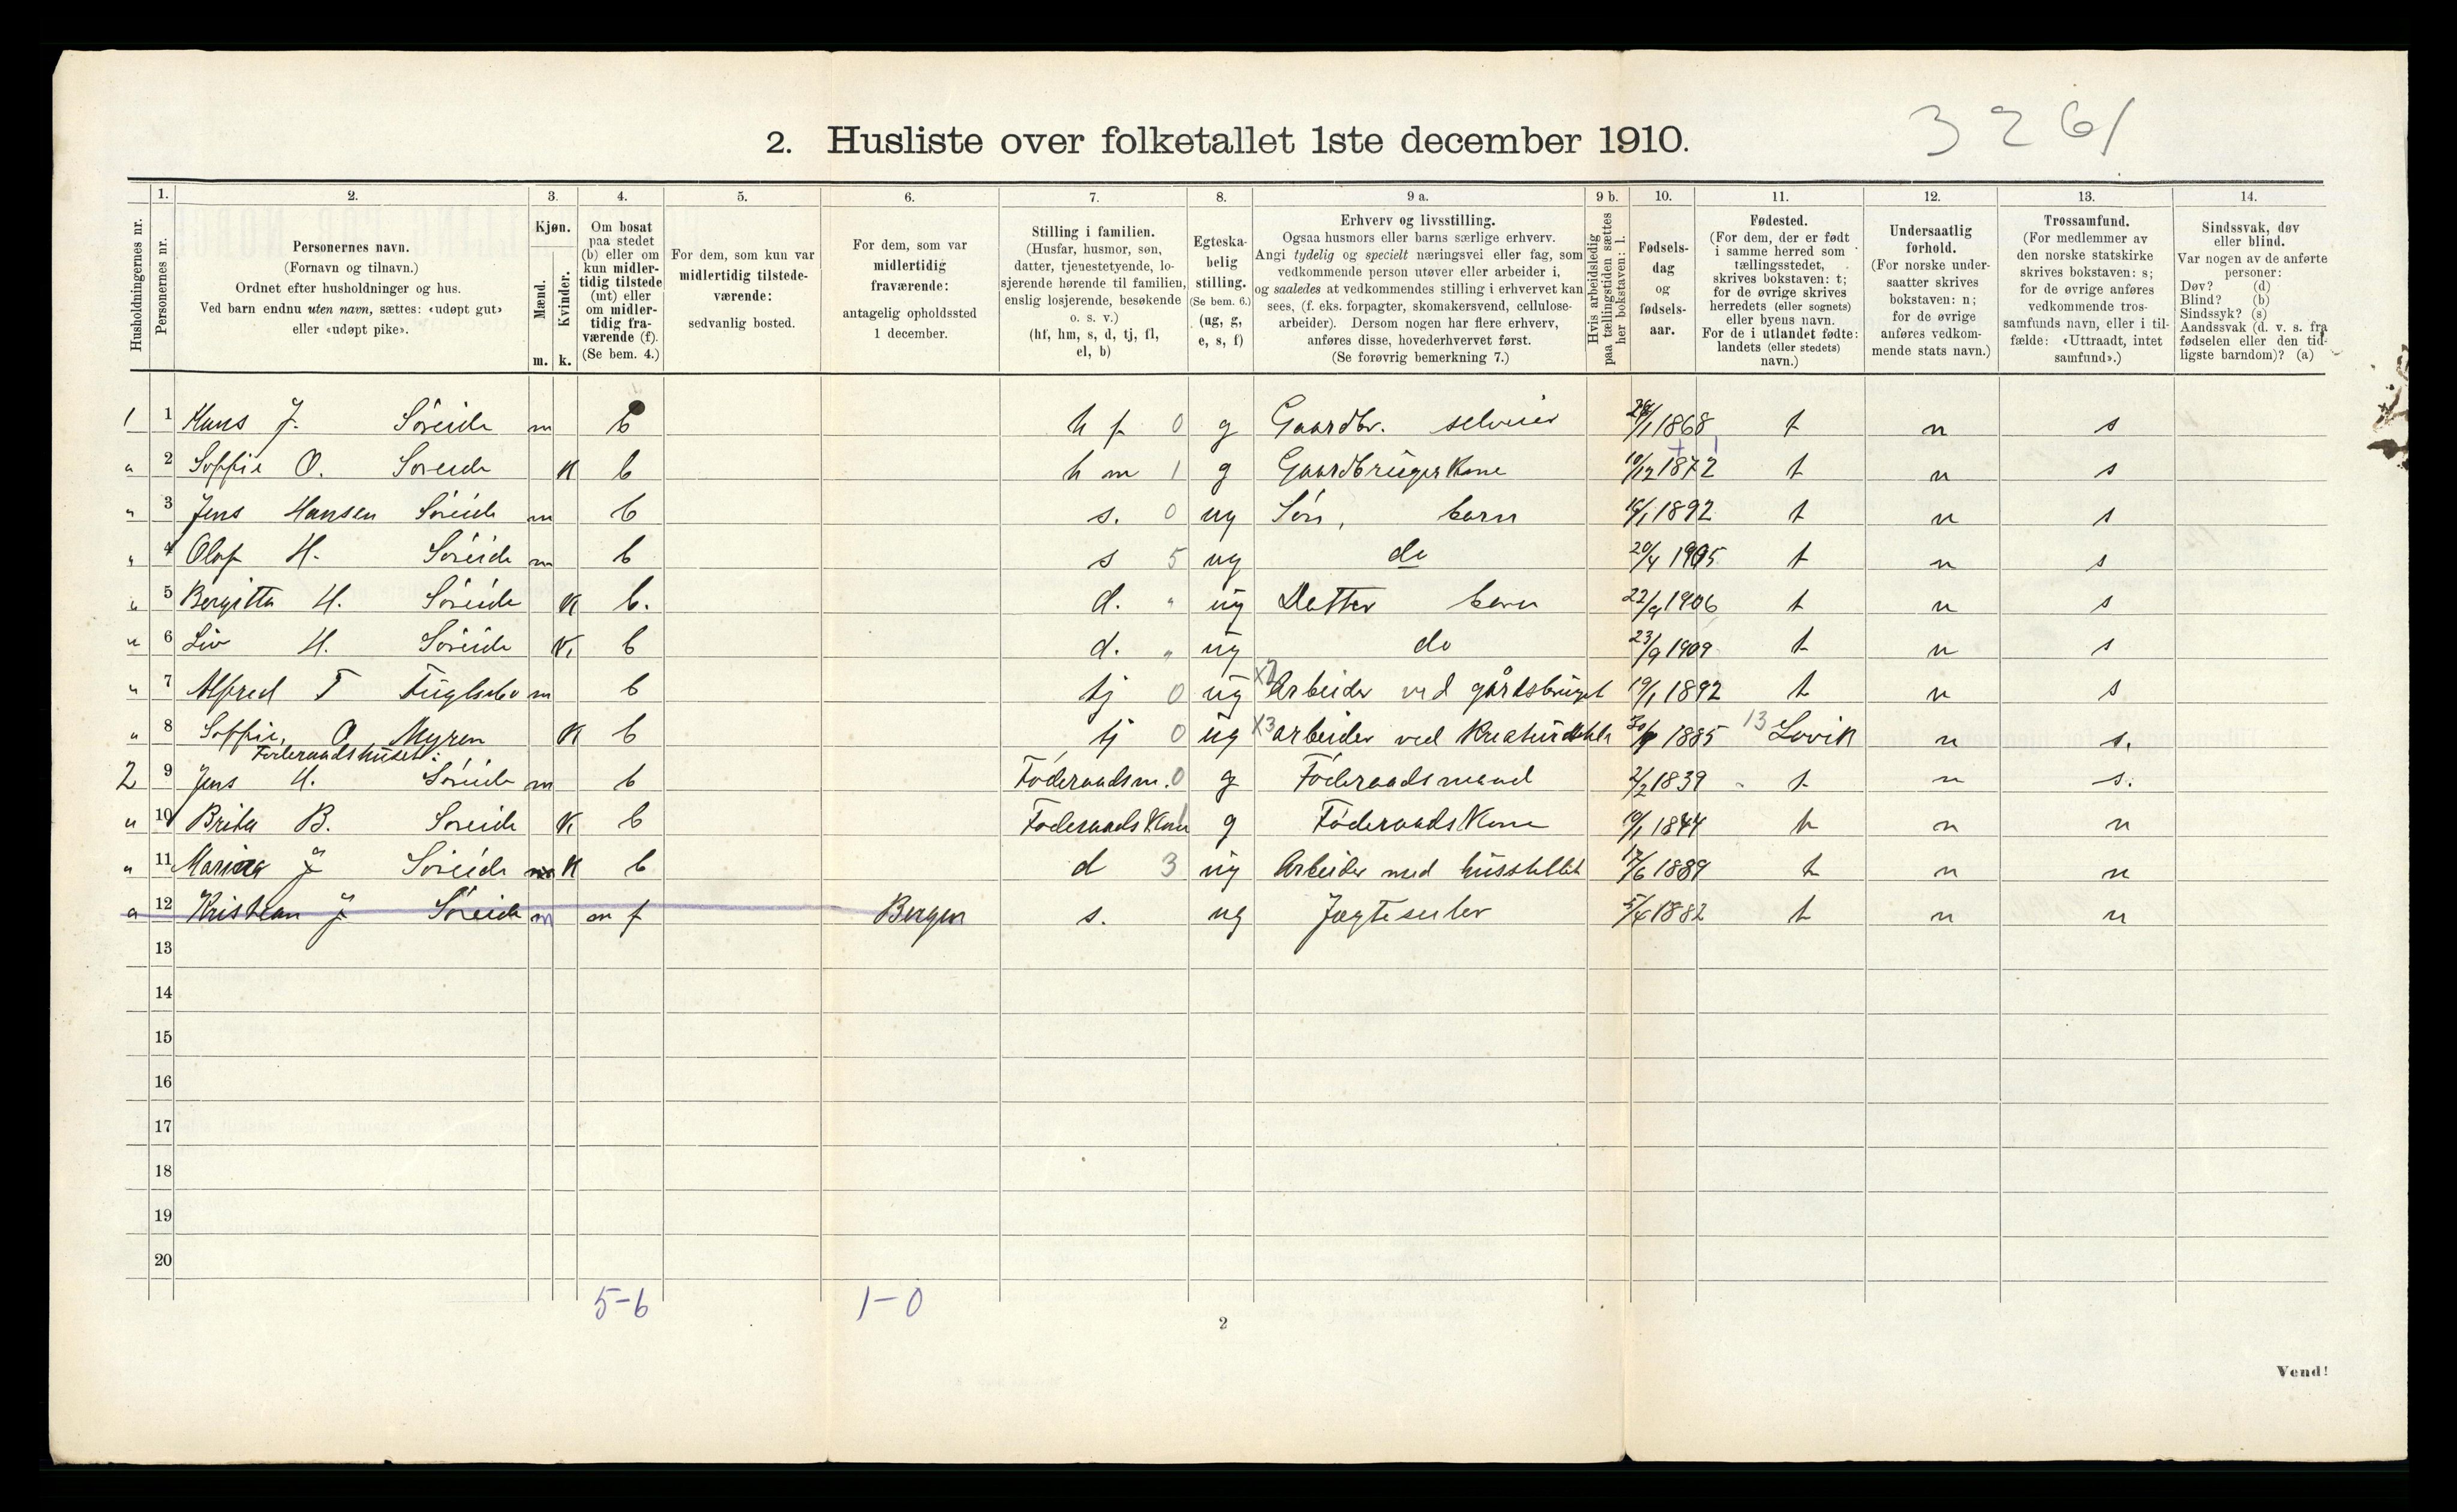 3261
2. Husliste over folketallet 1ste december 1910.
Husholdningernes nr.
1.
Personernes nr.
2.
Personernes navn.
(Fornavn og tilnavn.)
Ordnet efter husholdninger og hus.
Ved barn endnu uten navn, sættes: «udøpt gut»
eller «udøpt pike».
3.
Kjøn.
Mænd.
Kvinder.
m. k.
4.
Om bosat
paa stedet
(b) eller om
kun midler-
tidig tilstede
(mt) eller
om midler-
tidig fra-
værende (f).
(Se bem. 4.)
5.
For dem, som kun var
midlertidig tilstede-
værende:
sedvanlig bosted.
6.
For dem, som var
midlertidig
fraværende:
antagelig opholdssted
1 december.
7.
Stilling i familien.
(Husfar, husmor, søn,
datter, tjenestetyende, lo-
sjerende hørende til familien,
enslig losjerende, besøkende
o. s. v.)
(hf, hm, s, d, tj, fl,
el, b)
8.
Egteska-
belig
stilling.
(Se bem. 6.)
(ug, g,
e, s, f)
9 a.
Erhverv og livsstilling.
Ogsaa husmors eller barns særlige erhverv.
Angi tydelig og specielt næringsvei eller fag, som
vedkommende person utøver eller arbeider i,
og saaledes at vedkommendes stilling i erhvervet kan
sees, (f. eks. forpagter, skomakersvend, cellulose-
arbeider). Dersom nogen har flere erhverv,
anføres disse, hovederhvervet først.
(Se forøvrig bemerkning 7.)
9 b.
Hvis arbeidsledig
paa tællingstiden sættes
her bokstaven: l.
10.
Fødsels-
dag
og
fødsels-
aar.
11.
Fødested.
(For dem, der er født
i samme herred som
tællingsstedet,
skrives bokstaven: t;
for de øvrige skrives
herredets (eller sognets)
eller byens navn.
For de i utlandet fødte:
landets (eller stedets)
navn.)
12.
Undersaatlig
forhold.
(For norske under-
saatter skrives
bokstaven: n;
for de øvrige
anføres vedkom-
mende stats navn.)
13.
Trossamfund.
(For medlemmer av
den norske statskirke
skrives bokstaven: s;
for de øvrige anføres
vedkommende tros-
samfunds navn, eller i til-
fælde: «Uttraadt, intet
samfund».)
14.
Sindssvak, døv
eller blind.
Var nogen av de anførte
personer:
Døv? (d)
Blind? (b)
Sindssyk? (s)
Aandssvak (d. v. s. fra
fødselen eller den tid-
ligste barndom)? (a)
1 1 Hans J. Søreide m b hf 0 g Gaardbr. selveier 1868 t n s
" 2 Soffie O. Søreide K b hm 1 g Gaardbrugerkone 10/12 1872 t n s
" 3 Jens Hansen Søreide m b s. 0 ug Søn, barn 1892 t n s
" 4 Olaf H. Søreide m b s 5 ug do 20/4 1905 t n s
" 5 Bergitta H. Søreide K b. d. " ug Datter barn 22/9 1906 t n s
" 6 Liv H. Søreide K. b d. " ug do 23/9 1909 t n s
" 7 Alfred T Fuglsebø m b tj 0 ug X2 Arbeider ved gårdsbruget 19/1 1892 t n s
" 8 Soffie, O Myren K b tj 0 ug X3 arbeider ved Kreaturstellet 1885 13 Lovik n s.
Føderaadshuset:
2 9 Jens H. Søreide m b Føderaadsm. 0 g Føderaadsmand 2/2 1839 t n s.
" 10 Brita B. Søreide K. b Føderaads Kone g Føderaads Kone 10/1 1844 t n n
" 11 Marina J Søreide K b d 3 ug Arbeider med husstellet 17/6 1889 t n n
" 12 Kristian J Søreide m f Bergen s. ug Jægteseiler 5/4 1882 t n n
13
14
15
16
17
18
19
20
5-6 1-0
2
Vend!